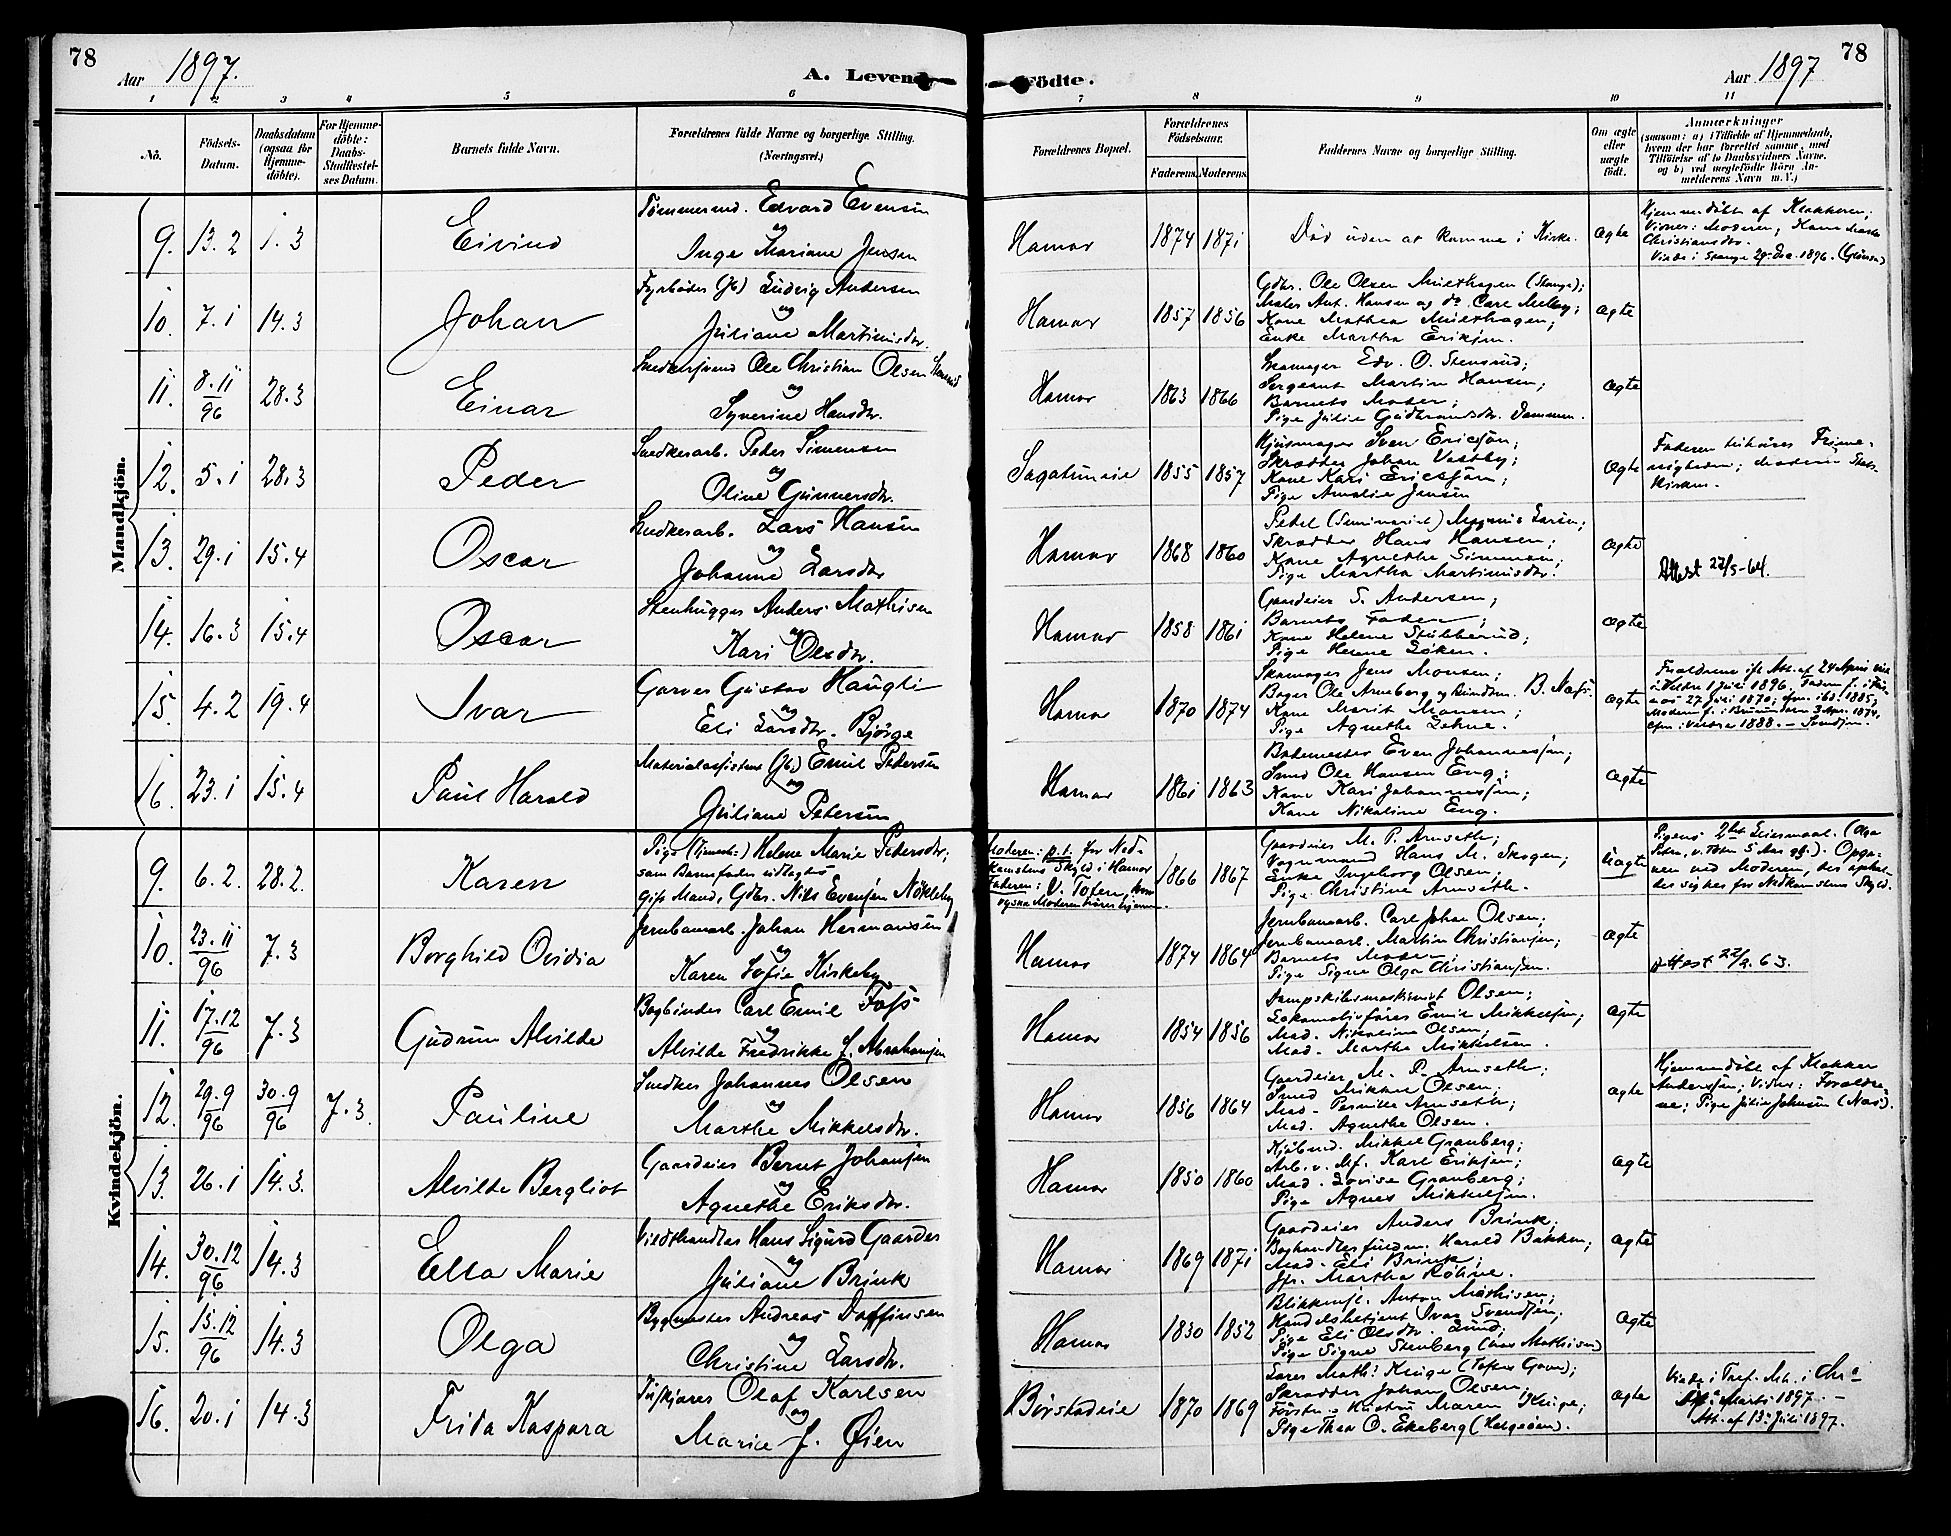 78
Aar 1897.
A. Levende
Födte.
Aar 1897
78
1 2 3 4 5 6 7 8 9 10 11
No.
Födsels-
Datum.
Daabsdatum
(ogsaa for
Hjemme-
döbte).
For Hjemme-
döbte:
Daabs-
Stadfæstel-
ses Datum.
Barnets fulde Navn.
Forældrenes fulde Navne og borgerlige Stilling.
(Næringsvei.)
Forældrenes Bopæl.
Forældrenes
Födselsaar.
Faderens. Moderens.
Faddernes Navne og borgerlige Stilling.
Om ægte
eller
uægte
födt.
Anmærkninger
(saasom: a) i Tilfælde af Hjemmedaab,
hvem der har forrettet samme, med
Tilföielse af to Daabsvidners Navne,
og b) ved uægtefödte Börn An-
melderens Navn m. V.)
Mandkjön.
9. 13.2 1.3 Eivind
Tømmermd. Edvard Evensen
og
Inge Mariane Jensen
Hamar 1874 1871
Død uden at komme i Kirke.
ægte
Hjemmedøbt af Klokkeren;
Vidner: Moderen, Kone Marte
Christiansdtr.
Viede i Stange 29 Dec. 1896.
10. 7.1 14.3 Johan
Fyrbøder (Jb) Ludvig Andersen
og
Juliane Martinusdtr.
Hamar 1857 1856
Gdbr. Ole Olsen Mælthagen (Stange);
Maler Ant. Hansen og do Carl Melby;
Kone Mathea Mælthagen;
Enke Martha Eriksen.
ægte
11. 8.11/96 28.3 Einar
Snedkersvend Ole Christian Olsen Stensrud
og
Syverine Hansdtr.
Hamar 1863 1866
Skomager Edv. O. Stensrud;
Sergeant Martin Hansen;
Barnets Moder;
Pige Julie Gudbrandsdtr. Dammen.
ægte
12. 5.1 28.3 Peder
Snedkerarb. Peder Simensen
og
Oline Gunnersdtr.
Sagatuneie 1855 1857
Hjulmager Sven Ericsøn;
Skrædder Johan Vestby;
Kone Kari Ericsøn;
Pige Amalie Jensen
ægte
Faderen tilhører Frime-
nigheden; Moderen Stats-
kirken.
13. 29.1 15.4 Oscar
Snedkerarb. Lars Hansen
og
Johanne Larsdtr
Hamar 1868 1860
Pedel (Seminariet) Magnus Larsen;
Skrædder Hans Hansen;
Kone Agnethe Simensen;
Pige Martha Martinusdtr.
ægte
Attest 22/5-64.
14. 16.3 15.4 Oscar
Stenhugger Anders Mathisen
og
Kari Olsdtr.
Hamar 1858 1861
Gaardeier S. Andersen;
Barnets Fader;
Kone Helene Stubberud;
Pige Helene Løken.
ægte
15. 4.2 19.4 Ivar
Garver Gustav Haugli
og
Eli Larsdtr. Bjørge
Hamar 1870 1874
Skomager Jens Monsen;
Bager Ole Arneberg og B. Næss.
Kone Marit Monsen;
Pige Agnethe Lehne.
ægte
Forældrene ifl. Att. af 24 April viet
i Veldre 1 Juli 1896. Faderen f.
27 Juli 1870; cfm. ibd. 1885;
Moderen f. i Brumunddalen 3 Apr. 1874,
cfm. i Veldre 1888. – Svendsen.
16. 23.1 15.4 Paul Harald
Materialassistent (Jb.) Emil Pedersen
og
Juliane Petersen
Hamar 1861 1863
Banemester Even Johannessen;
Smed Ole Hansen Eng;
Kone Kari Johannessen;
Kone Nikoline Eng.
ægte
Kvindekjön.
9. 6.2. 28.2. Karen
Pige (Tjenest:) Helene Marie Pedersdtr;
som Barnefader udlagdes
gift Mand, Gdbr. Nils Evensen Nøkleby
Moderen: p.t. for Ned-
komstens Skyld i Hamar
Faderen: V. Toten, hvor
ogsaa Moderen hører hjemme.
1866 1867
Gaardeier M. P. Arnseth;
Vognmand Hans M. Skogen;
Enke Ingeborg Olsen;
Pige Christine Arnseth.
uægte
Pigens 2det Leiermaal. (Olga
Petra, v. Toten 5 Aar gl.). Opga-
ven ved Moderen, der ophol-
der sig her for Nedkomstens Skyld.
10. 23.11/96 7.3 Borghild Ovidia
Jernbanearb. Johan Hermansen
og
Karen Sofie Kirkeby
Hamar 1874 1864
Jernbanearb. Carl Johan Olsen;
Jernbanearb. Martin Christiansen;
Barnets Moder;
Pige Signe Olga Christiansen.
ægte
Attest 22/2.63.
11. 17.12/96 7.3 Gudrun Alvilde
Bogbinder Carl Emil Foss
og
Alvilde Fredrikke f. Abrahamsen
Hamar 1854 1856
Dampskibsmaskinist Olsen;
Lokomotivfører Emil Mikkelsen;
Mad. Nikoline Olsen;
Mad. Marthe Mikkelsen.
ægte
12. 29.9/96 30.9/96 7.3. Pauline
Snedker Johannes Olsen
og
Marthe Mikkelsdtr.
Hamar 1856 1864
Gaardeier M. P. Arnseth;
Smed Mikkel Olsen;
Mad. Pernille Arnseth;
Mad. Agnethe Olsen.
ægte
Hjemmedøbt af Klokker
Anderssen; Vidner: Forældre-
ne; Pige Julie Johnsen (Næs).
13. 26.1 14.3. Alvilde Bergliot
Gaardeier Bernt Johansen
og
Agnethe Eriksdtr.
Hamar 1850 1860
Kjøbmd. Mikkel Granberg;
Arb. v. Mf. Karl Eriksen;
Mad. Lovise Granberg;
Pige Agnes Mikkelsen.
ægte
14. 30.12/96 14.3 Ella Marie
Vildthandler Hans Sigurd Gaarder
og
Juliane Brink
Hamar 1869 1871
Gaardeier Anders Brink;
Boghandlerfuldm. Harald Bakken;
Mad. Eli Brink;
Jfr. Martha Røhne.
ægte
15. 15.12/96 14.3 Olga
Bygmester Andreas Doffinsen
og
Christine Larsdtr.
Hamar 1830 1852
Blikkensl. Anton Mathisen;
Handelsbetjent Ivar Svendsen;
Pige Eli Olsdtr. Lund;
Pige Signe Stenberg (hos Mathisen)
ægte
16. 20.1 14.3 Frida Kaspara
Pudsskjærer Olaf Karlsen
og
Marie f. Øien
Børstadeie 1870 1869
Lærer Math: Kruge
Skrædder Johan Olsen;
Hustru Maren Kruge;
Pige Thea O. Ekeberg (Helgøen).
ægte
Viede i Tref. Mh. i Chra
Marts 1897. –
Att. af 13 Juli 1897.